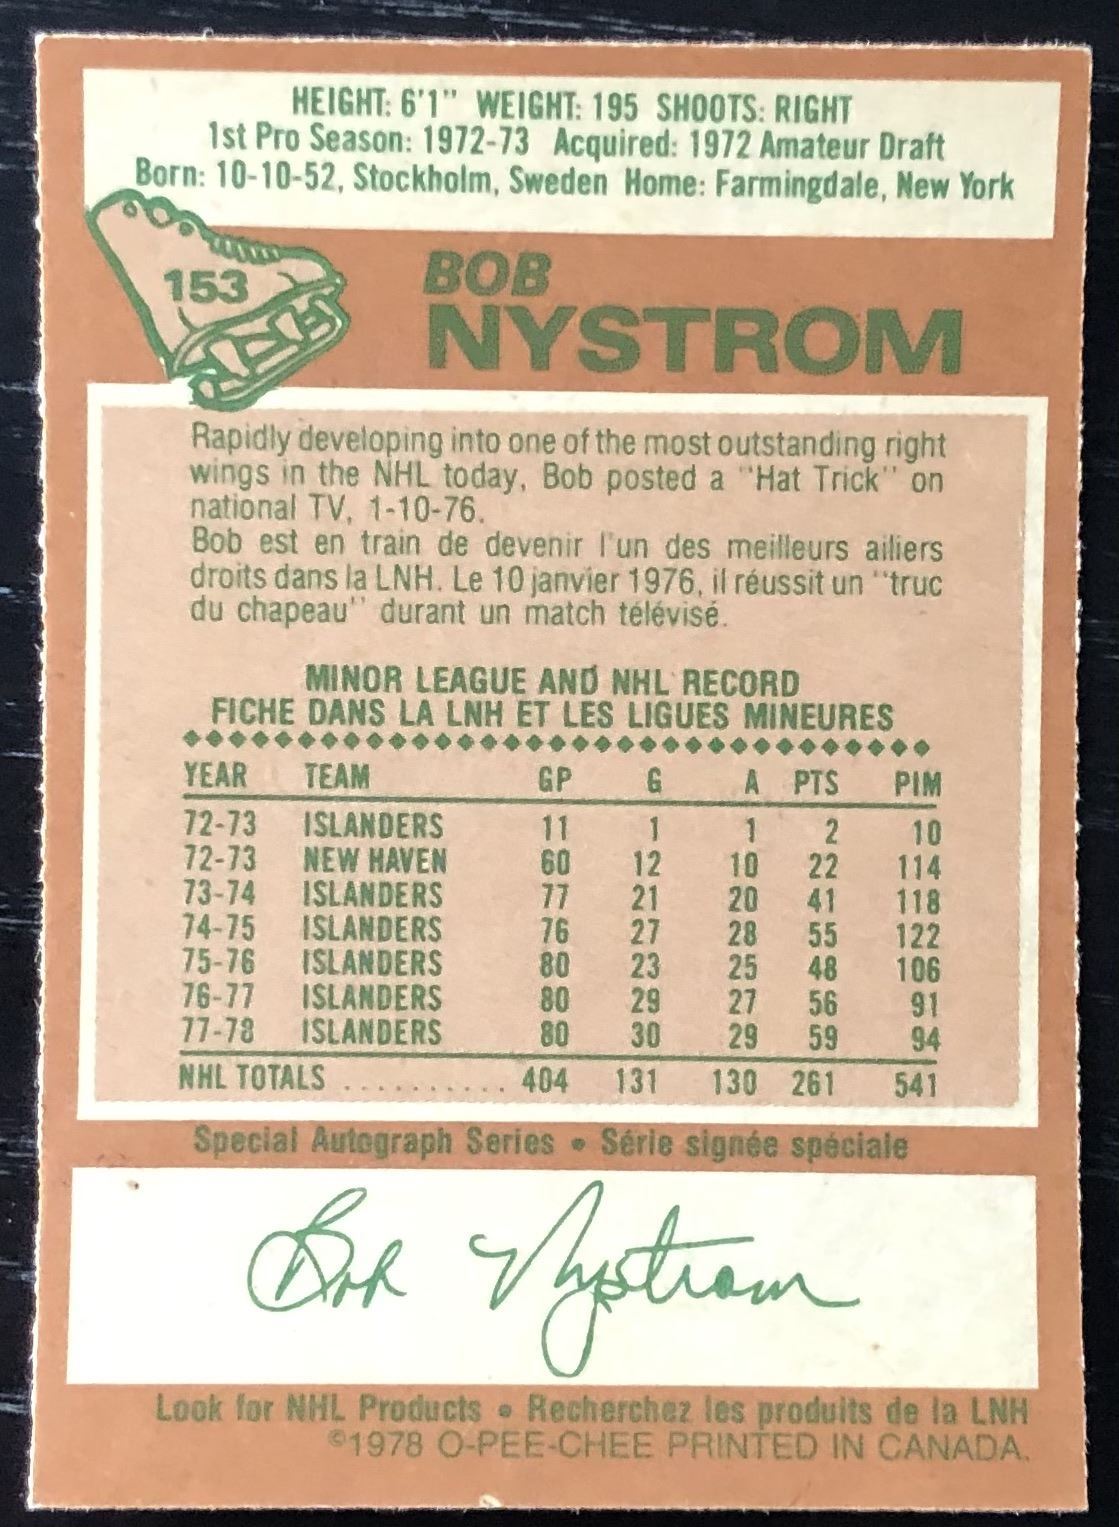 HEIGHT: 6'1" WEIGHT: 195 SHOOTS: RIGHT
1st Pro Season: 1972-73 Acquired: 1972 Amateur Draft
Born: 10-10-52, Stockholm, Sweden Home: Farmingdale, New York
153
BOB
NYSTROM
Rapidly developing into one of the most outstanding right
wings in the NHL today, Bob posted a "Hat Trick" on
national TV, 1-10-76.
Bob est en train de devenir l'un des meilleurs ailiers
droits dans la LNH. Le 10 janvier 1976, il réussit un "truc
du chapeau" durant un match télévisé.
MINOR LEAGUE AND NHL RECORD
FICHE DANS LA LNH ET LES LIGUES MINEURES
YEAR TEAM GP G A PTS PIM
72-73 ISLANDERS 11 1 1 2 10
72-73 NEW HAVEN 60 12 10 22 114
73-74 ISLANDERS 77 21 20 41 118
74-75 ISLANDERS 76 27 28 55 122
75-76 ISLANDERS 80 23 25 48 106
76-77 ISLANDERS 80 29 27 56 91
77-78 ISLANDERS 80 30 29 59 94
NHL TOTALS .......... 404 131 130 261 541
Special Autograph Series • Série signée spéciale
Bob Nystrom
Look for NHL Products • Recherchez les produits de la LNH
©1978 O-PEE-CHEE PRINTED IN CANADA.